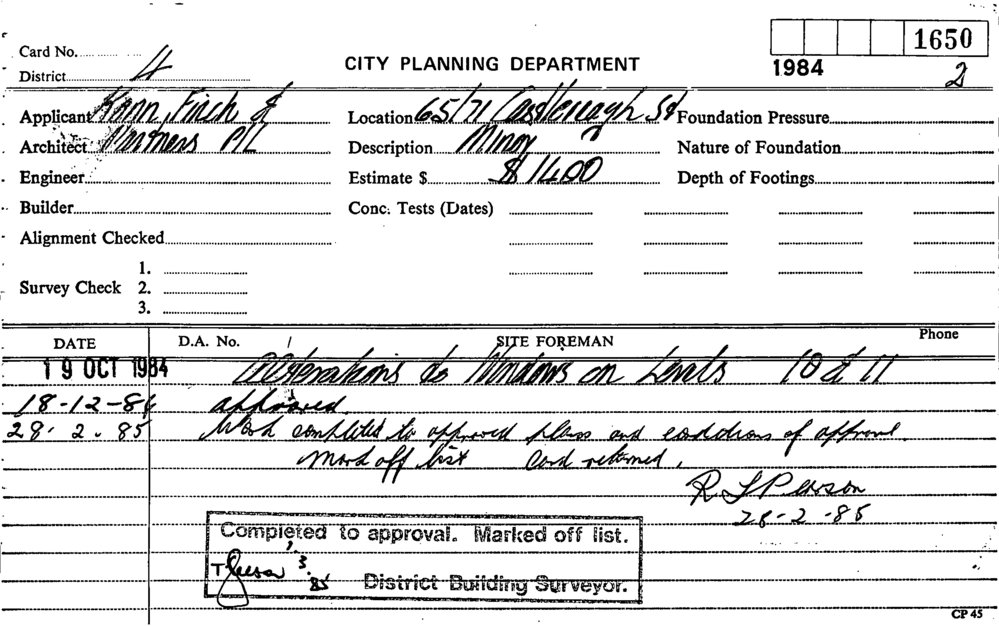 1650
Card No.
CITY PLANNING DEPARTMENT
1984
2
District 4
Applicant Hann, Finch &
Location 65/71 Castlereagh St
Foundation Pressure
Architect Partners P/L
Description Minor
Nature of Foundation
Engineer
Estimate $ $1400
Depth of Footings
Builder
Conc. Tests (Dates)
Alignment Checked
1.
Survey Check 2.
3.
DATE D.A. No. SITE FOREMAN Phone
19 OCT 1984 Alterations to Windows on Levels 10 & 11
18-12-84 approved.
28. 2. 85 Work completed to approved plans and conditions of approval.
Mark off list Card returned.
R L Pearson
28-2-85
Completed to approval. Marked off list.
3.
85 District Building Surveyor.
CP 45